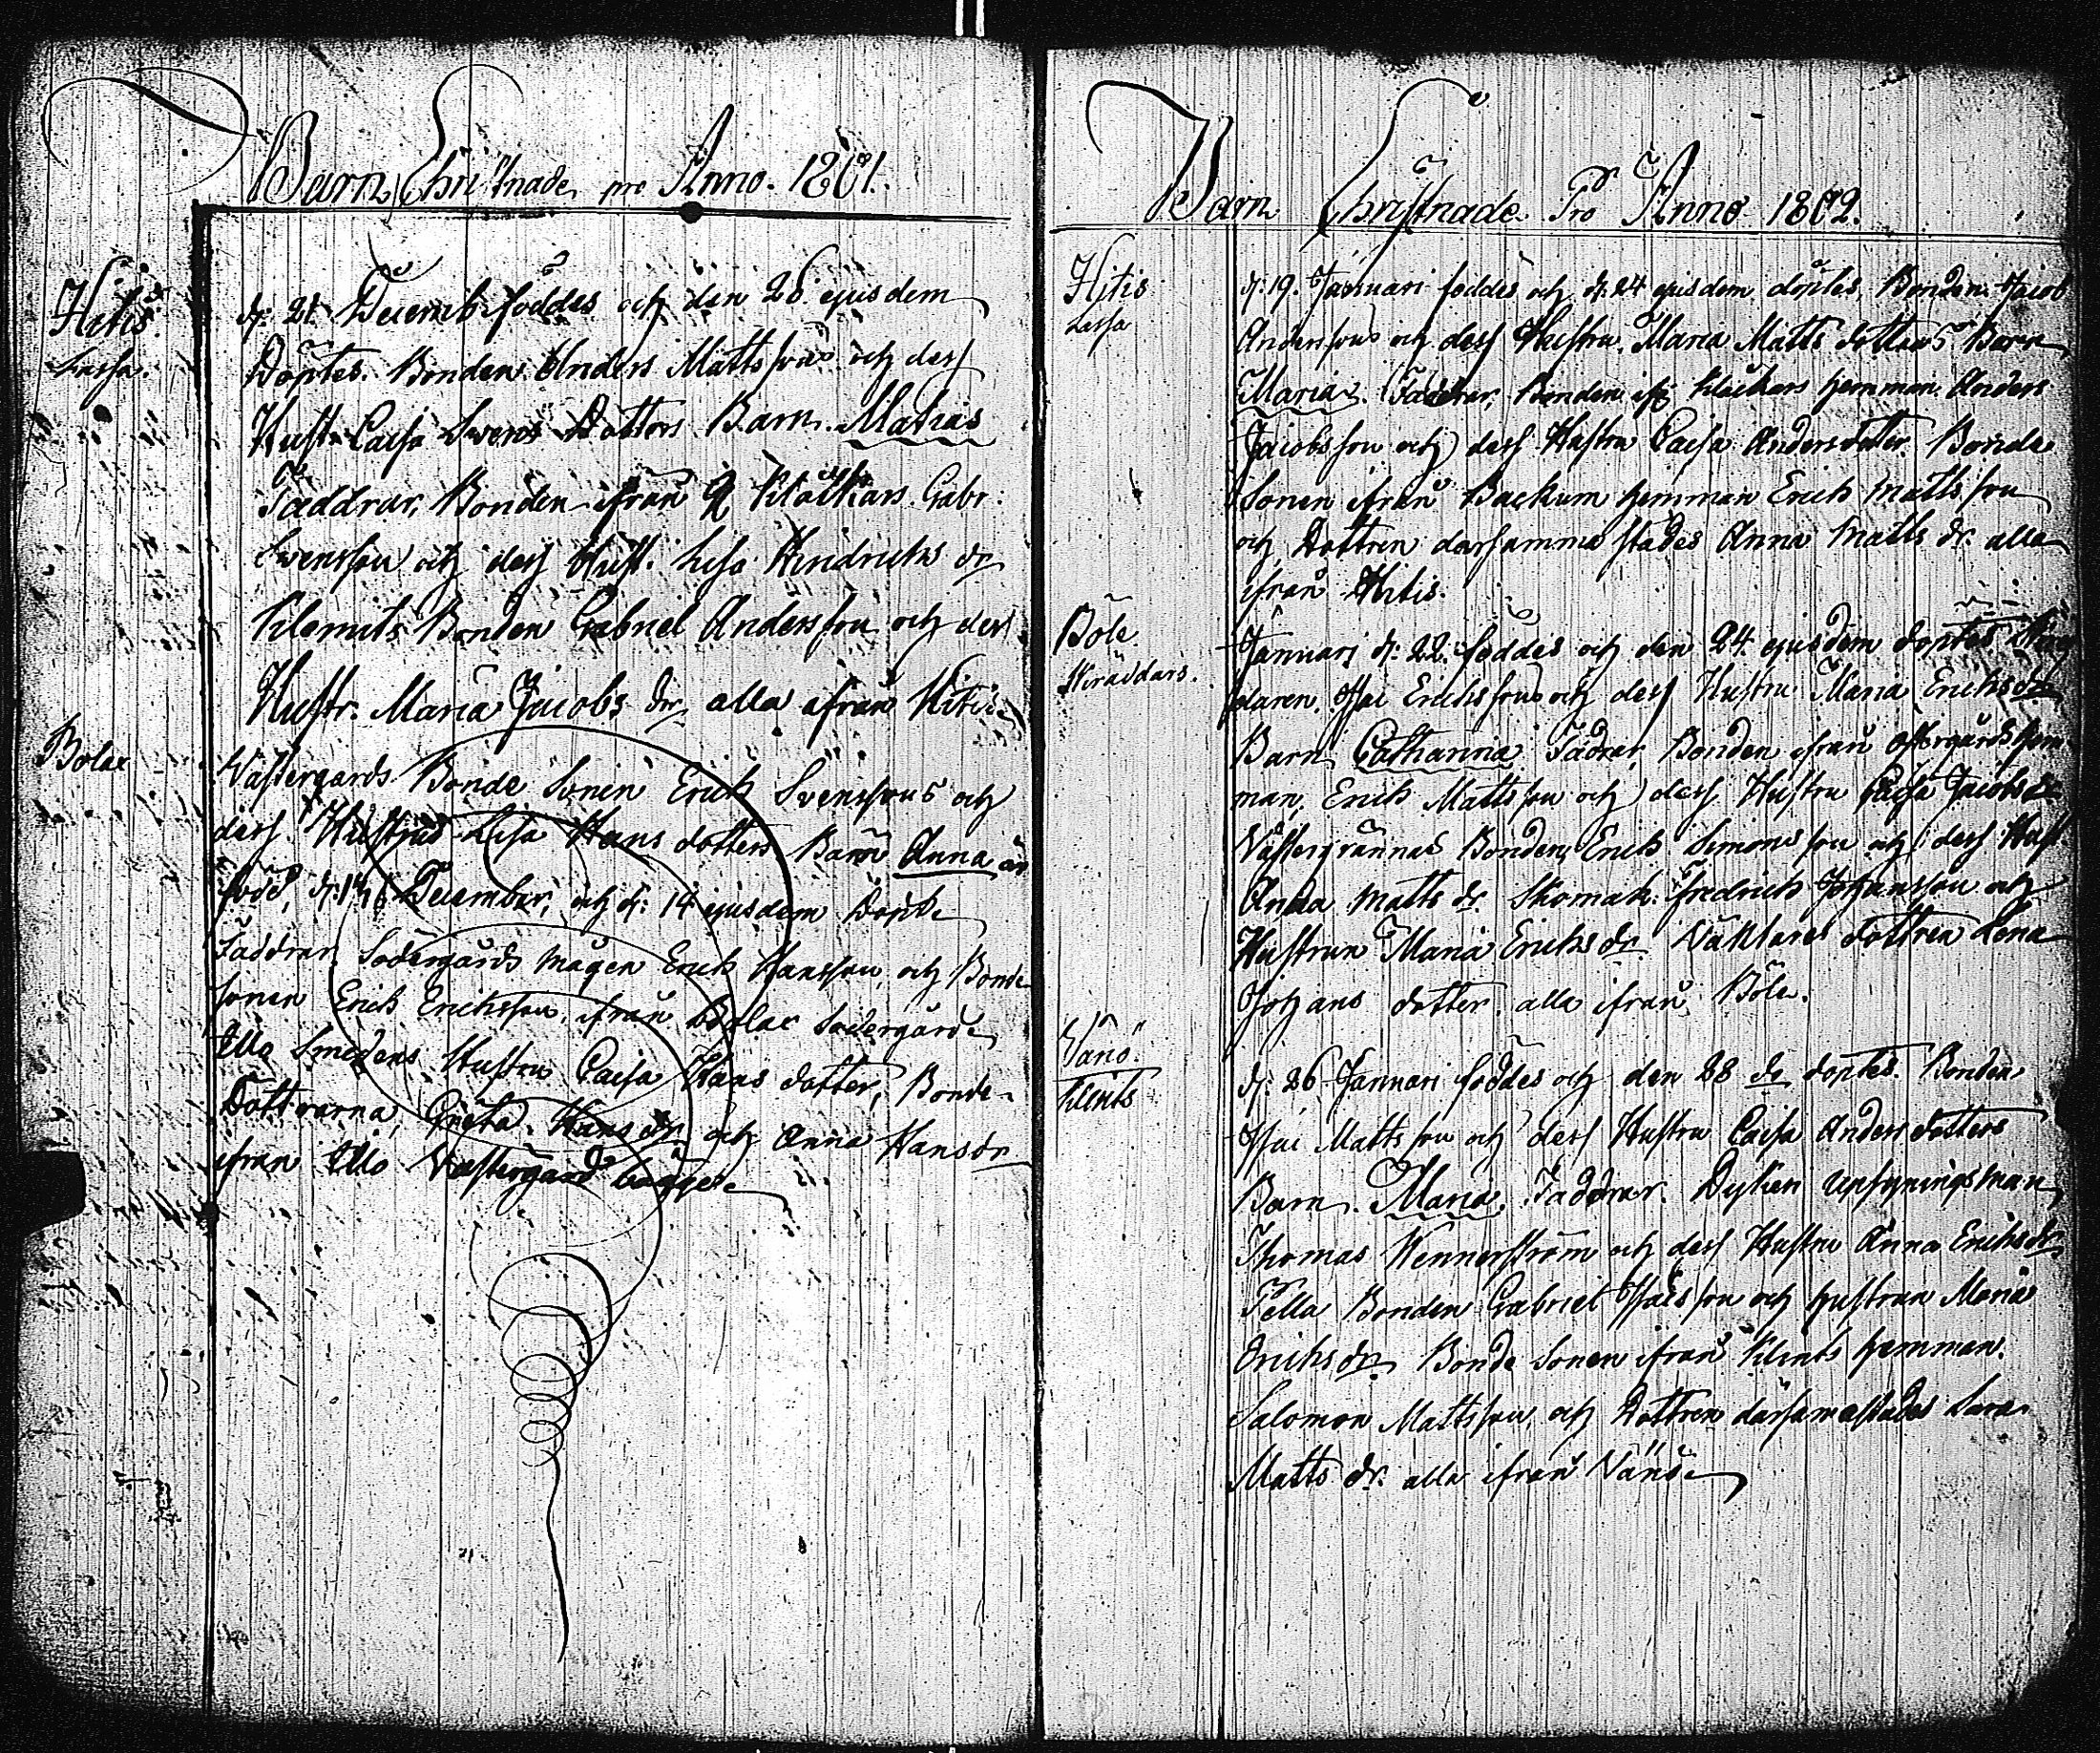 Barn Christnade pro Anno. 1801.
Hitis
Lassa.
d: 21 Decemb. föddes och den 26 ejusdem
Döptes. Bonden Anders Mattssons och dess
Hust. Caisa Svens Dotters Barn. Matias
Faddrar, Bonden ifrån Klåckars Gabr:
Svensson och dess Hust. Lisa Hindrichs dr
Klemits Bonden Gabriel Andersson och dess
Hustr. Maria Jacobs dr, alla ifrån Hitis
Bolax
Västergards Bonde Sonen Erich Svenssons och
dess Hustrus Lisa Hans dotters Barn Anna är
född, d: December, och d: 14 ejusdem Döpt.
Faddrar Södergårds mågen Erich Hansson, och Bonde
sonen Erich Erichsson, ifrån Bolax Södergård.
Ello Smedens Hustru Caisa Hans dotter, Bonde-
Döttrarna, Greta Hans dr och Anna Hansdr
ifrån Ello Västergård bägge.
Barn Christnade Pro Anno 1802.
Hitis
Lassa
d: 19. Januari föddes och d: 24 ejusdem döptes, Bonden Jacob
Anderssons och dess Hustru Maria Matts dotters Barn
Maria. Faddrar, Bonden ifr Klåckars hemman Anders
Jacobsson och dess Hustru Caisa Andersdotter. Bonde
Sonen ifrån Backum hemman Erich Mattsson
och Dottren därsamma städes Anna Matts dr. alla
ifrån Hitis.
Böle
Skräddars.
Januarj d: 22. föddes och den 24. ejusdem döptes
daren, Isac Erichssons och dess Hustru Maria Erichsdr
Barn Catharina Fadrar, Bonden ifrån Östergårds hem
man, Erich Mattsson och dess Hustru Caisa Jacobsdr
Västergrannas Bonden Erich Simonsson och dess Hust
Anna Matts dr. Skomak. Fredrich Johansson och
Hustrun Maria Erichs dr. Väktares dottren Lena
Johans dotter alla ifrån Böle.
Vänö.
Klents
d: 26 Januari föddes och den 28 do döptes. Bonden
Isac Mattsson och dess Hustru Caisa Anders dotters
Barn. Maria. Faddrar. Dyken Upsyningsman
Thomas Wennerström och dess Hustru Anna Erichsdr
Pella Bonden Gabriel Isacsson och hustrun Maria
Erichs dr, Bonde Sonen ifrån Klents hemman.
Salomon Mattsson och Dottren därsamastädes Sara
Matts dr. alla ifrån Vänö